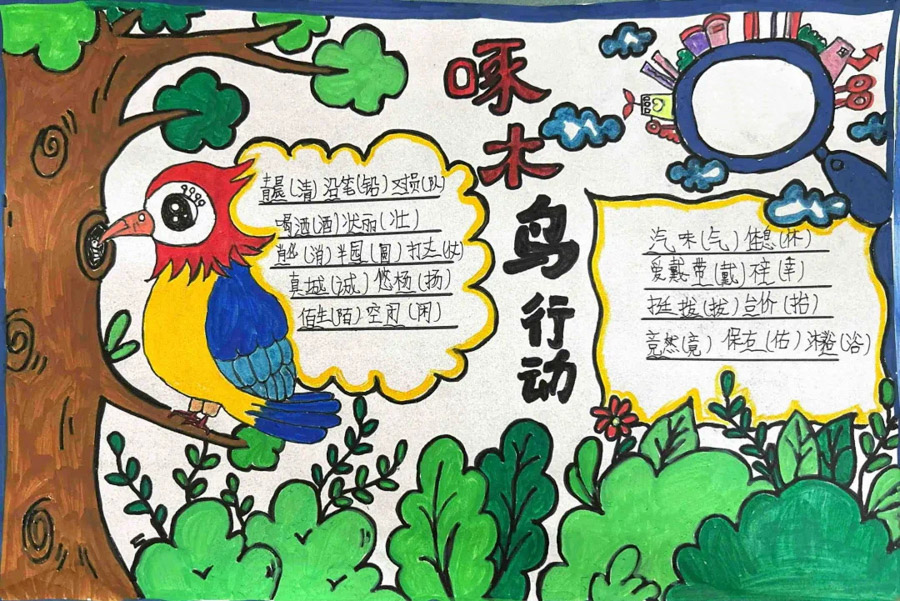 啄木鸟行动
青晨(清) 沿笔(铅) 对员(队)
喝洒(酒) 状丽(壮)
肖华(消) 半园(圆) 打丈(仗)
真城(诚) 悠杨(扬)
佰生(陌) 空闭(闲)
汽味(气) 体息(休)
爱戴带(戴) 梓(幸)
挺拨(拔) 台价(抬)
竟然(竟) 保右(佑) 沐裕(浴)